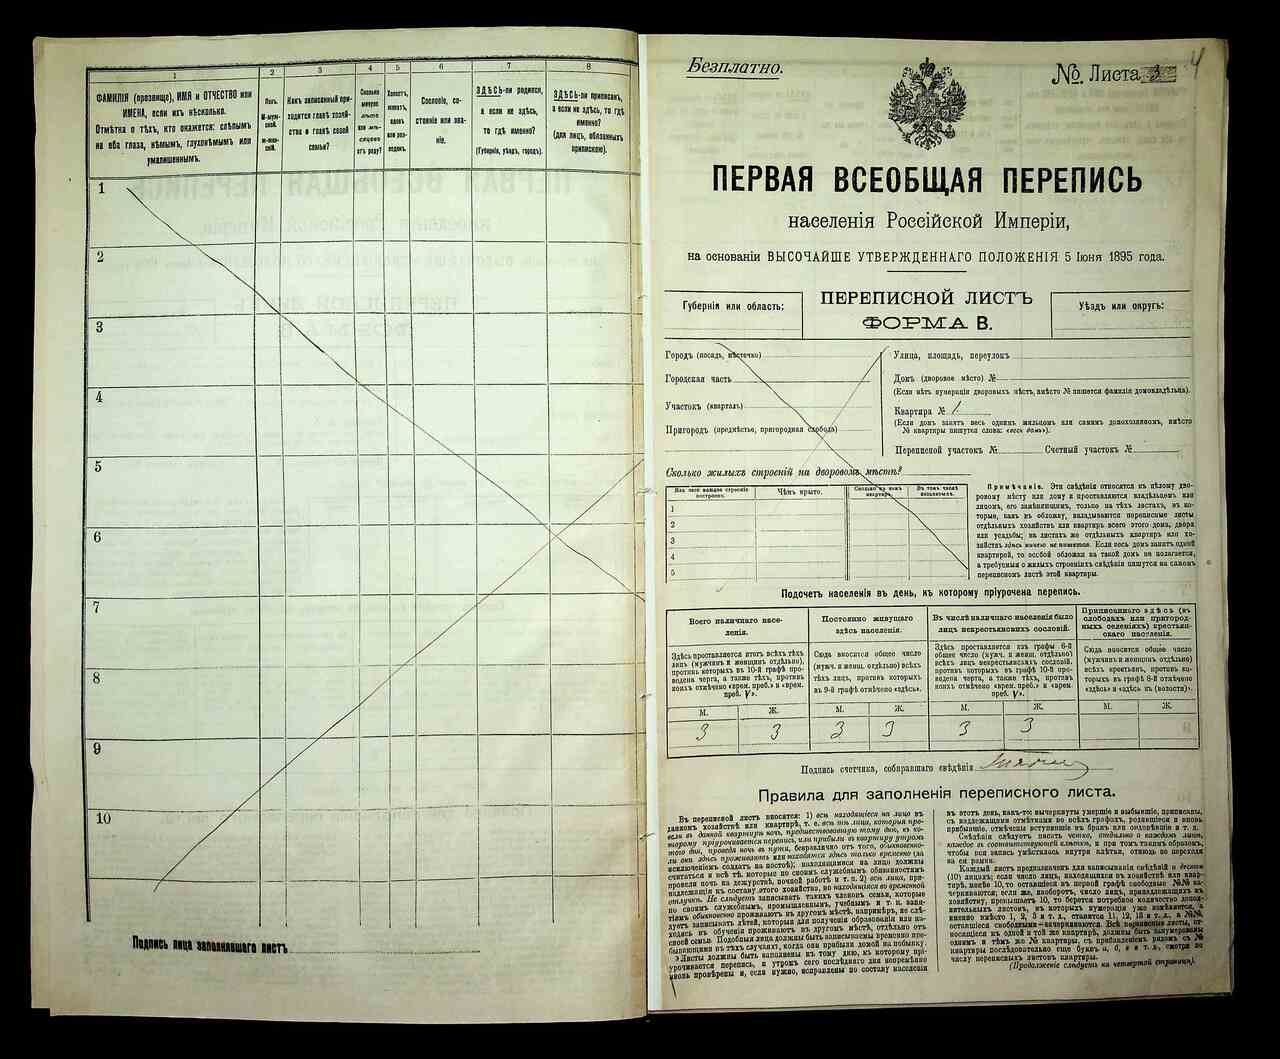 1
ФАМИЛІЯ (прозвище), ИМЯ и ОТЧЕСТВО или
ИМЕНА, если ихъ нѣсколько.
Отмѣтка о тѣхъ, кто окажется: слѣпымъ
на оба глаза, нѣмымъ, глухонѣмымъ или
умалишеннымъ.
2
Полъ.
М-муж-
ской.
ж-жен-
скій.
3
Какъ записанный при-
ходится главѣ хозяй-
ства и главѣ своей
семьи?
4
Сколько
минуло
лѣтъ
или мѣ-
сяцевъ
отъ роду?
5
Холостъ,
женатъ,
вдовъ
или раз-
веденъ.
6
Сословіе, со-
стояніе или зва-
ніе.
7
ЗДѢСЬ-ли родился,
а если не здѣсь,
то гдѣ именно?
(Губернія, уѣздъ, городъ).
8
ЗДѢСЬ-ли приписанъ,
а если не здѣсь, то гдѣ
именно?
(для лицъ, обязанныхъ
припискою).
1
2
3
4
5
6
7
8
9
10
Подпись лица заполнявшаго листъ
Безплатно.
№ Листа 3
4
ПЕРВАЯ ВСЕОБЩАЯ ПЕРЕПИСЬ
населенія Россійской Имперіи,
на основаніи ВЫСОЧАЙШЕ УТВЕРЖДЕННАГО ПОЛОЖЕНІЯ 5 Іюня 1895 года.
Губернія или область:
ПЕРЕПИСНОЙ ЛИСТЪ
ФОРМА В.
Уѣздъ или округъ:
Городъ (посадъ, мѣстечко)
Городская часть
Участокъ (кварталъ)
Пригородъ (предмѣстье, пригородная слобода)
Улица, площадь, переулокъ
Домъ (дворовое мѣсто) №
(Если нѣтъ нумераціи дворовыхъ мѣстъ, вмѣсто № пишется фамилія домовладѣльца).
Квартира № 1
(Если домъ занятъ весь однимъ жильцомъ или самимъ домохозяиномъ, вмѣсто
№ квартиры пишутся слова: «весь домъ»).
Переписной участокъ № Счетный участокъ №
Сколько жилыхъ строеній на дворовомъ мѣстѣ?
Изъ чего каждое строеніе
построено.
Чѣмъ крыто.
Сколько въ немъ
квартиръ.
Въ томъ числѣ
1
2
3
4
5
Примѣчаніе. Эти свѣдѣнія относятся къ цѣлому дво-
ровому мѣсту или дому и проставляются владѣльцемъ или
лицомъ, его замѣняющимъ, только на тѣхъ листахъ, въ ко-
торые, какъ въ обложку, вкладываются переписные листы
отдѣльныхъ хозяйствъ или квартиръ всего этого дома, двора
или усадьбы; на листахъ же отдѣльныхъ квартиръ или хо-
зяйствъ здѣсь ничего не пишется. Если весь домъ занятъ одной
квартирой, то особой обложки на такой домъ не полагается,
а требуемыя о жилыхъ строеніяхъ свѣдѣнія пишутся на самомъ
переписномъ листѣ этой квартиры.
Подсчетъ населенія въ день, къ которому пріурочена перепись.
Всего наличнаго насе-
ленія.
Здѣсь проставляется итогъ всѣхъ тѣхъ
лицъ (мужчинъ и женщинъ отдѣльно),
противъ которыхъ въ 10-й графѣ про-
ведена черта, а также тѣхъ, противъ
коихъ отмѣчено «врем. преб.» и «врем.
преб. V».
М. Ж.
3 3
Постоянно живущаго
здѣсь населенія.
Сюда вносится общее число
(мужч. и женщ. отдѣльно) всѣхъ
тѣхъ лицъ, противъ которыхъ
въ 9-й графѣ отмѣчено «здѣсь».
М. Ж.
3 3
Въ числѣ наличнаго населенія было
лицъ некрестьянскихъ сословій.
Здѣсь проставляется изъ графы 6-й
общее число (мужч. и женщ. отдѣльно)
всѣхъ лицъ некрестьянскихъ сословій,
противъ которыхъ въ графѣ 10-й прове-
дена черта, а также тѣхъ, противъ
коихъ отмѣчено «врем. преб.» и «врем.
преб. V».
М. Ж.
3 3
Приписаннаго здѣсь (въ
слободахъ или пригород-
ныхъ селеніяхъ) крестьян-
скаго населенія.
Сюда вносится общее число
(мужчинъ и женщинъ отдѣльно)
всѣхъ крестьянъ, противъ ко-
торыхъ въ графѣ 8-й отмѣчено
«здѣсь» и «здѣсь (къ волости)».
М. Ж.
Подпись счетчика, собиравшаго свѣдѣнія
Правила для заполненія переписного листа.
Въ переписной листъ вносятся: 1) всѣ находящіеся на лицо въ
данномъ хозяйствѣ или квартирѣ, т. е. всѣ тѣ лица, которыя про-
вели въ данной квартирѣ ночь, предшествовавшую тому дню, къ ко-
торому пріурочивается перепись, или прибыли въ квартиру утромъ
того дня, проведя ночь въ пути, безразлично отъ того, обыкновенно-
ли они здѣсь проживаютъ или находятся здѣсь только временно (за
исключеніемъ солдатъ на постоѣ); находящимися на лицо должны
считаться и всѣ тѣ, которые по своимъ служебнымъ обязанностямъ
провели ночь на дежурствѣ, ночной работѣ и т. п. 2) всѣ лица, при-
надлежащія къ составу этого хозяйства, но находящіяся во временной
отлучкѣ. Не слѣдуетъ записывать такихъ членовъ семьи, которые
по своимъ служебнымъ, промышленнымъ, учебнымъ и т. п. заня-
тіямъ обыкновенно проживаютъ въ другомъ мѣстѣ, напримѣръ, не слѣ-
дуетъ записывать дѣтей, которыя для полученія образованія или на-
ходясь въ обученіи проживаютъ въ другомъ мѣстѣ, отдѣльно отъ
своей семьи. Подобныя лица должны быть записываемы временно пре-
бывающими въ тѣхъ случаяхъ, когда они прибыли домой на побывку.
Листы должны быть заполнены къ тому дню, къ которому прі-
урочивается перепись, и утромъ сего послѣдняго дня непремѣнно
вновь провѣрены и, если нужно, исправлены по составу населенія
въ этотъ день, какъ-то: вычеркнуты умершіе и выбывшіе, приписаны,
съ надлежащими отмѣтками во всѣхъ графахъ, родившіеся и вновь
прибывшіе, отмѣчены вступившіе въ бракъ или овдовѣвшіе и т. д.
Свѣдѣнія слѣдуетъ писать четко, отдѣльно о каждомъ лицѣ,
каждое въ соотвѣтствующей клѣткѣ, и при томъ такимъ образомъ,
чтобы вся запись умѣсталась внутри клѣтки, отнюдь не переходя
за ея рамки.
Каждый листъ предназначенъ для записыванія свѣдѣній о десяти
(10) лицахъ; если число лицъ, находящихся въ хозяйствѣ или квар-
тирѣ, менѣе 10, то оставшіеся въ первой графѣ свободные №№ вы-
черкиваются; если же, наоборотъ, число лицъ, принадлежащихъ къ
хозяйству, превышаетъ 10, то берется потребное количество допол-
нительныхъ листовъ, въ которыхъ нумерація уже измѣняется, а
именно вмѣсто 1, 2, 3 и т. д., ставится 11, 12, 13 и т. д., а №№,
оставшіеся свободными—вычеркиваются. Всѣ переписные листы, от-
носящіеся къ одной и той же квартирѣ, должны быть занумерованы
однимъ и тѣмъ же № квартиры, съ прибавленіемъ рядомъ съ №
квартиры послѣдовательно еще буквъ а, б, в и т. д., смотря по
числу переписныхъ листовъ квартиры.
(Продолженіе слѣдуетъ на четвертой страницѣ).